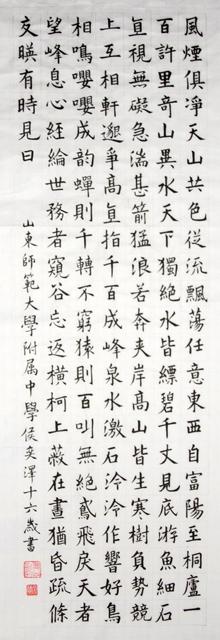 風煙俱淨天山共色從流飄蕩任意東西自富陽至桐廬一
百許里奇山異水天下獨絕水皆縹碧千丈見底游魚細石
直視無礙急湍甚箭猛浪若奔夾岸高山皆生寒樹負勢競
上互相軒邈爭高直指千百成峰泉水激石泠泠作響好鳥
相鳴嚶嚶成韵蟬則千轉不窮猿則百叫無絕鳶飛戾天者
望峰息心経綸世務者窺谷忘返橫柯上蔽在晝猶昏疏條
交暎有時見日
山東師範大學附属中學侯奕澤十六歲書